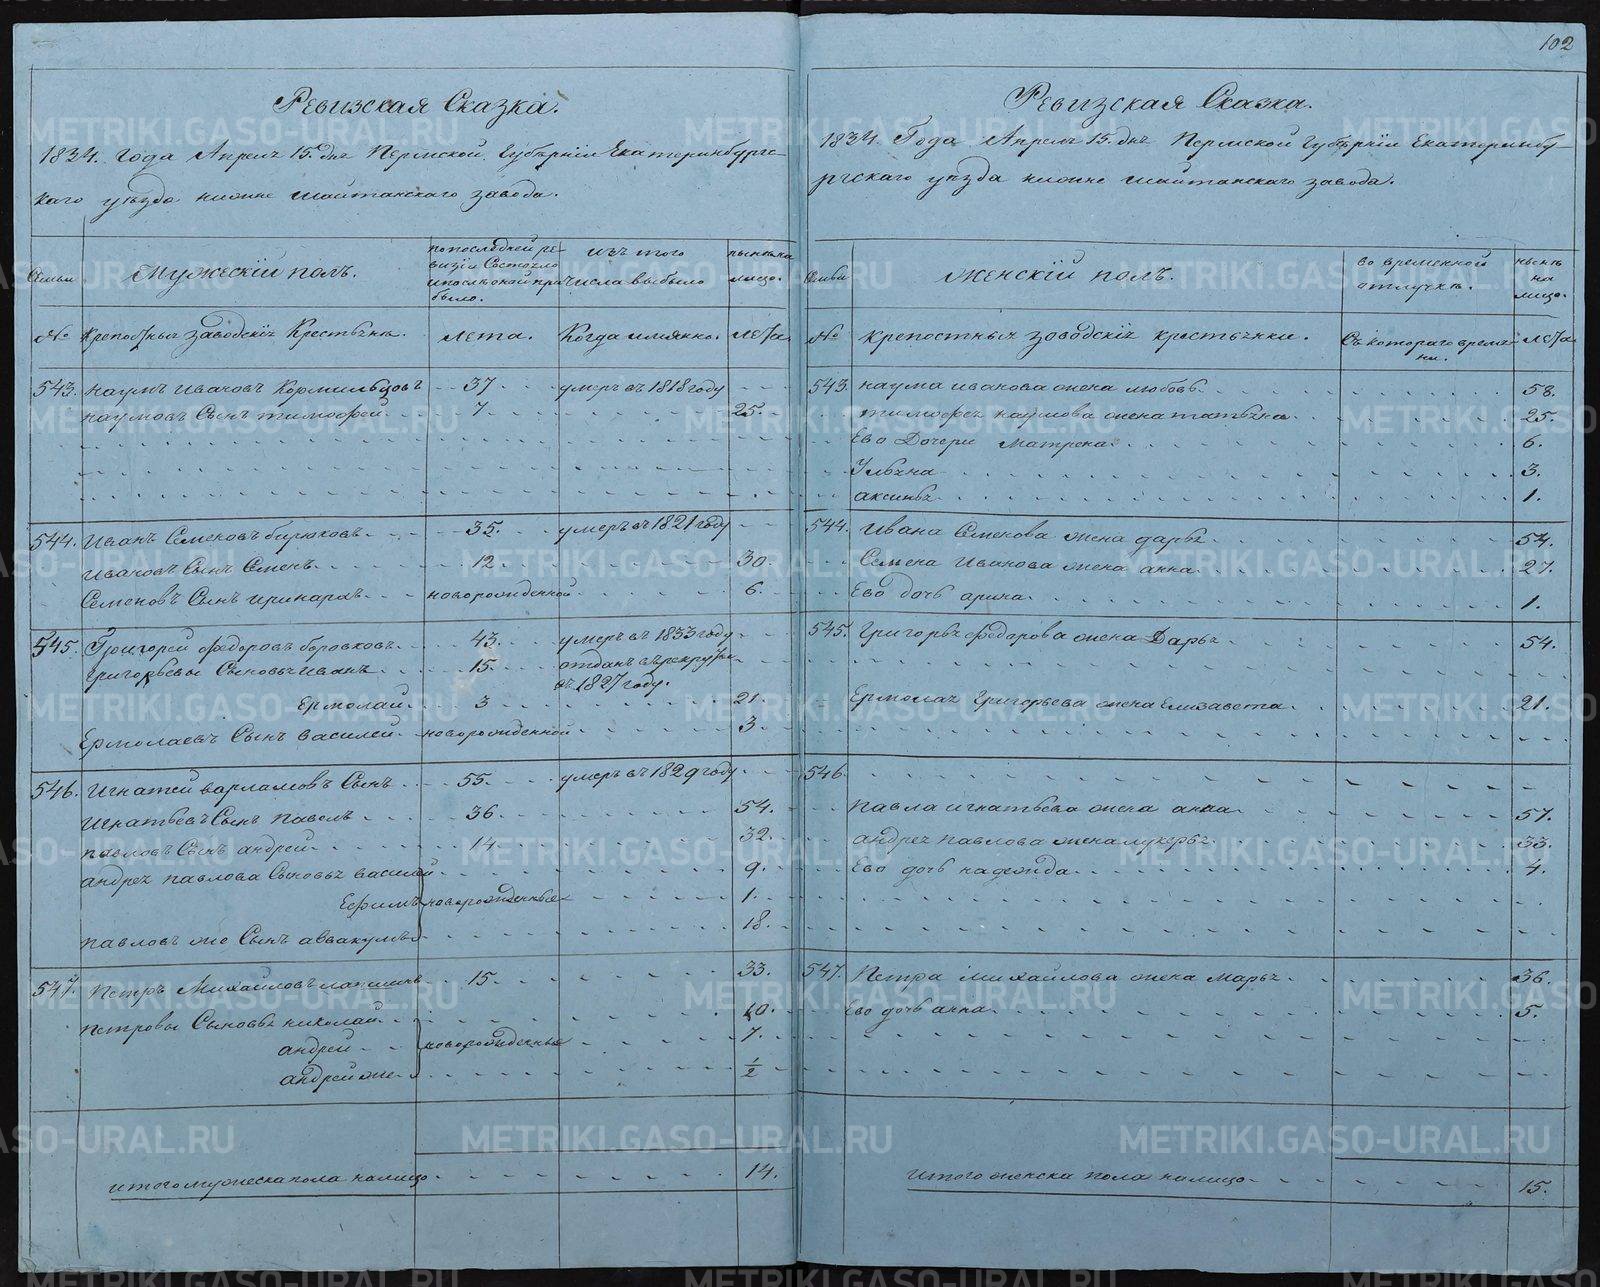 102
Ревизская Сказка.
1834. года Апреля 15. дня Пермской Губернии Екатеринбургс-
каго уезда нижне шайтанскаго завода.
Семьи
Мужескій полъ.
по последней ре-
визіи Состояло
и после оной при
было.
Изъ того
числа выбыло
ныне на
лицо.
№
Крепостныхъ заводскихъ Крестьянъ.
лета.
Когда имянно.
лета.
543. наумъ ивановъ Кормильцовъ 37 умеръ въ 1818 году
наумовъ Сынъ тимофей 7 25.
544. Иванъ Семеновъ бирюковъ 35. умеръ въ 1821 году
Ивановъ Сынъ Семенъ 12 30
Семеновъ Сынъ принархъ новорожденной 6.
545. Григорей федоровъ боровковъ 43. умеръ въ 1833 году
григорьевы Сыновья иванъ 15. отданъ в рекруты
въ 1827 году.
Ермолай 3 21.
Ермолаевъ Сынъ василей новорожденной 3.
546. Игнатей варламовъ Сынъ 55. умеръ въ 1829 году
Игнатьевъ Сынъ павелъ 36. 54.
павловъ Сынъ андрей 14 32.
андрея павлова Сыновья василей 9.
Ефимъ новорожденные 1.
павловъ же Сынъ аввакумъ 18.
547. Петръ Михайловъ лапшинъ 15. 33.
петровы Сыновья николай 10.
андрей новорожденные 7.
андрей же 1/2
итого мужеска пола налицо 14.
Ревизская Сказка.
1834. Года Апреля 15. дня Пермской Губерніи Екатеринбу-
ргскаго уезда нижне шайтанскаго завода.
Семьи
Женскій полъ.
во временной
отлучке.
ныне
на
лицо.
№
крепостныхъ заводскихъ крестьянки.
Съ котораго време-
ни.
лета
543. наума иванова жена любовь 58.
тимофея наумова жена татьяна 25.
Ево Дочери матрена 6.
Ульяна 3.
аксинья 1.
544. Ивана Семенова жена дарья 54.
Семена Иванова жена анна 27.
Ево дочь арина 1.
545. Григорья федорова жена Дарья 54.
Ермолая Григорьева жена Елизавета 21.
546.
павла игнатьева жена анна 57.
андрея павлова жена лукерья 33.
Ево дочь надежда 4.
547. Петра михайлова жена марья 36.
Ево дочь анна 5.
итого женска пола налицо 15.
METRIKI.GASO-URAL.RU